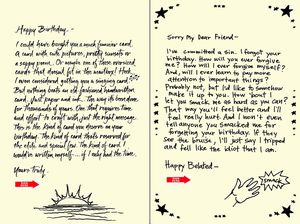 Happy Birthday.-
I could have bought you a most famous card.
A card with cute pictures, pretty sunsets or
a sappy poem. Or maybe one of those oversized
cards that doesn't fit in the mailbox! Heck,
I even considered getting you a singing card!
But nothing beats an old fashioned handwritten
card. Just paper and ink. The way it's been done
for thousands of years. One that requires time
and effort to craft with just the right message.
This is the kind of card you deserve on your
birthday. The kind of card that's reserved for
the elite and special few. The kind of card I
would've written myself... if I only had the time.
Yours Truly,
Sorry My Dear Friend-
I've committed a sin. I forgot your
birthday. How will you ever forgive
me? How will I ever forgive myself?
And, will I ever learn to pay more
attention to important things?
Probably not, but I'd like to somehow
make it up to you. How 'bout I
let you smack me as hard as you can?
That way you'll feel better and I'll
feel really hurt. And I won't even
tell anyone you smacked me for
forgetting your birthday. If they
see the bruise, I'll just say I tripped
and fell like the idiot that I am.
Happy Belated-
SMACK